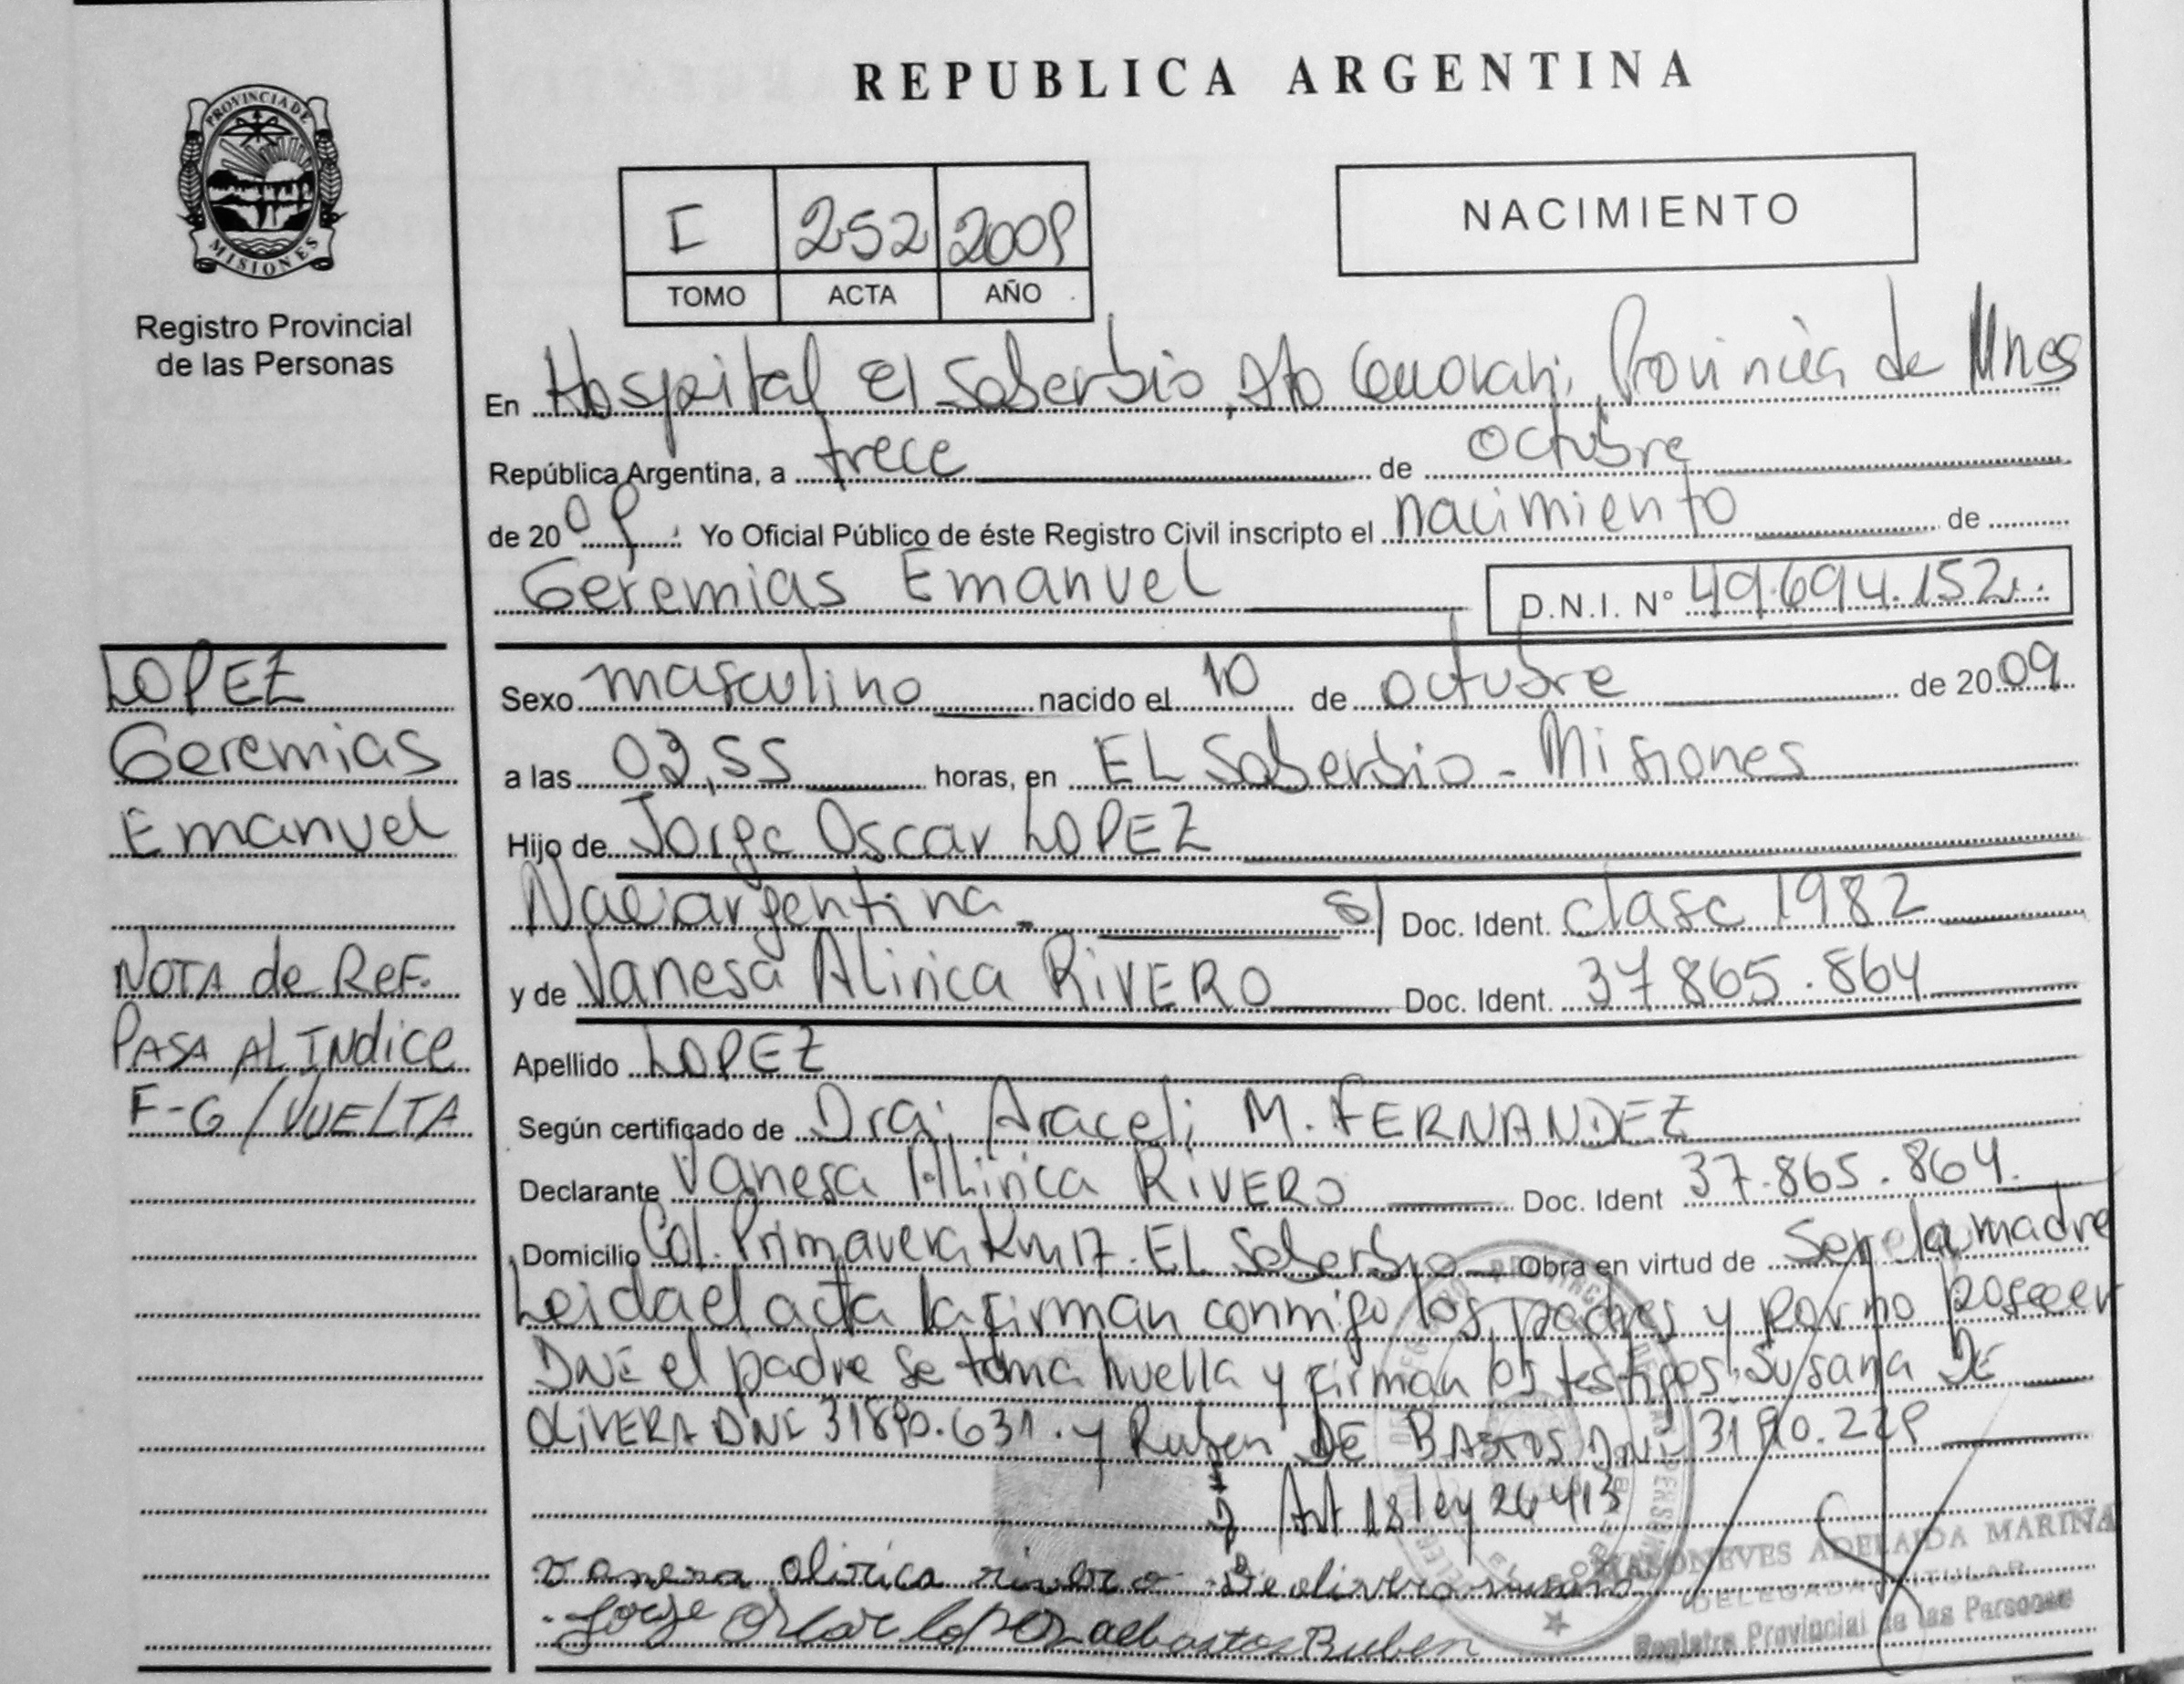 REPUBLICA ARGENTINA
PROVINCIA DE
MISIONES
Registro Provincial
de las Personas
I 252 2009
TOMO ACTA AÑO
NACIMIENTO
En Hospital El Soberbio, Dto Guarani, Provincia de Mnes
República Argentina, a trece de octubre
de 2009. Yo Oficial Público de éste Registro Civil inscripto el nacimiento de
Geremias Emanuel D.N.I. N° 49.694.152
LOPEZ
Geremias
Emanuel
NOTA de REF.
PASA AL INdice
F-G/VUELTA
Sexo masculino nacido el 10 de octubre de 2009
a las horas, en EL Soberbio - Misiones
Hijo de Jorge Oscar LOPEZ
Nac argentina - s/ Doc. Ident. clase 1982
y de Vanesa Alirica RIVERO Doc. Ident. 37865.864
Apellido LOPEZ
Según certificado de Dra. Araceli M. FERNANDEZ
Declarante Vanesa Alirica RIVERO Doc. Ident 37.865.864.
Domicilio Col. Primavera Km 17 - EL Soberbio Obra en virtud de Ser la madre
Leida el acta la firman conmigo los padres y por no poseer
DNI el padre se toma huella y firman los testigos: Susana DE
OLIVERA DNI 31890.631. y Ruben DE BASTOS DNI
Art 18 ley 26413
vanesa alirica rivero De olivera susana
Jorge Oscar lopez debastos Ruben
ADELAIDA MARINA
DELEGADA TITULAR
Registro Provincial de las Personas